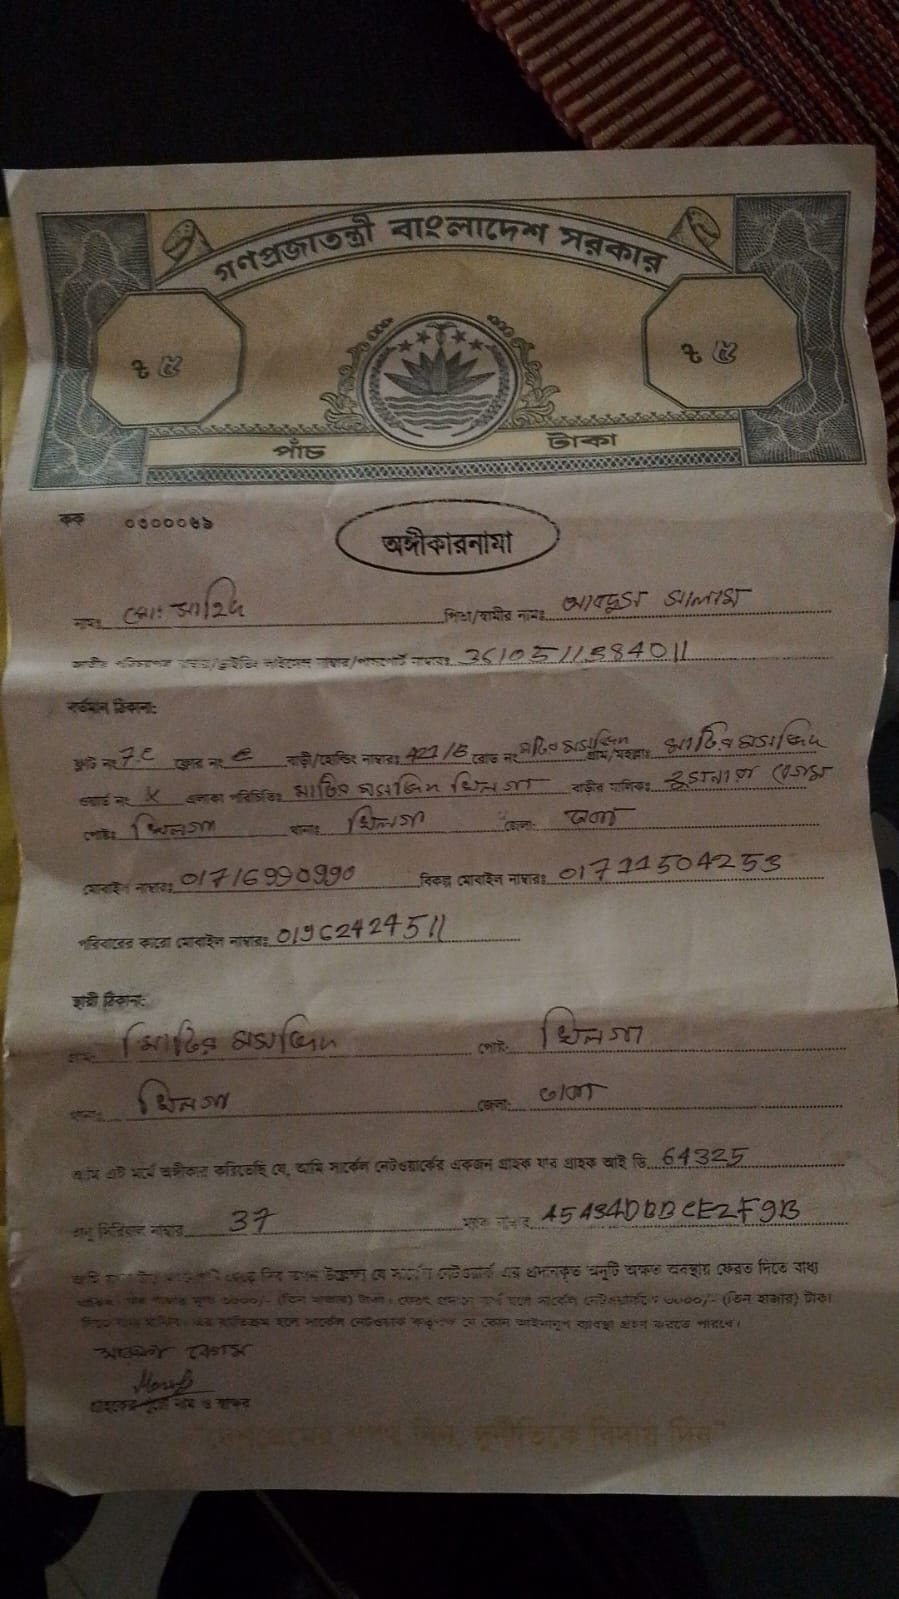 গণপ্রজাতন্ত্রী বাংলাদেশ সরকার
৳ ৫ ৳ ৫
পাঁচ টাকা
কক ০৩০০০৬৯
অঙ্গীকারনামা
নামঃ মোঃ সাহিদ পিতা/স্বামীর নামঃ আবদুস সালাম
জাতীয় পরিচয়পত্র নাম্বার/ড্রাইভিং লাইসেন্স নাম্বার/পাসপোর্ট নাম্বারঃ
বর্তমান ঠিকানা:
ফ্লাট নং 7.C ফ্লোর নং বাড়ী/হোল্ডিং নাম্বারঃ রোড নং মাটির মসজিদ গ্রাম/মহল্লাঃ মাটির মসজিদ
ওয়ার্ড নং X এলাকা পরিচিতিঃ মাটির মসজিদ খিলগা বাড়ীর মালিকঃ বেগম
পোষ্টঃ খিলগা থানাঃ খিলগা জেলা: ঢাকা
মোবাইল নাম্বারঃ 01716990990 বিকল্প মোবাইল নাম্বারঃ 01711504253
পরিবারের কারো মোবাইল নাম্বারঃ 01962424511
স্থায়ী ঠিকানা:
গ্রাম: মাটির মসজিদ পোষ্ট: খিলগা
থানা: খিলগা জেলা: ঢাকা
আমি এই মর্মে অঙ্গীকার করিতেছি যে, আমি সার্কেল নেটওয়ার্কের একজন গ্রাহক যার গ্রাহক আই ডি 64325
অনু সিরিয়াল নাম্বার 37 ম্যাক নাম্বার
যে সার্কেল নেটওয়ার্ক এর প্রদানকৃত অনুটি অক্ষত অবস্থায় ফেরত দিতে বাধ্য
৩০০০/- (তিন হাজার) টাকা। সার্কেল নেটওয়ার্ককে ৩০০০/- (তিন হাজার) টাকা
সার্কেল নেটওয়ার্ক কতৃপক্ষ যে কোন আইনানুগ ব্যবস্থা গ্রহন করতে পারবে।
বেগম
গ্রাহকের পুরো নাম ও স্বাক্ষর
"দেশপ্রেমের শপথ নিন, দুর্নীতিকে বিদায় দিন"